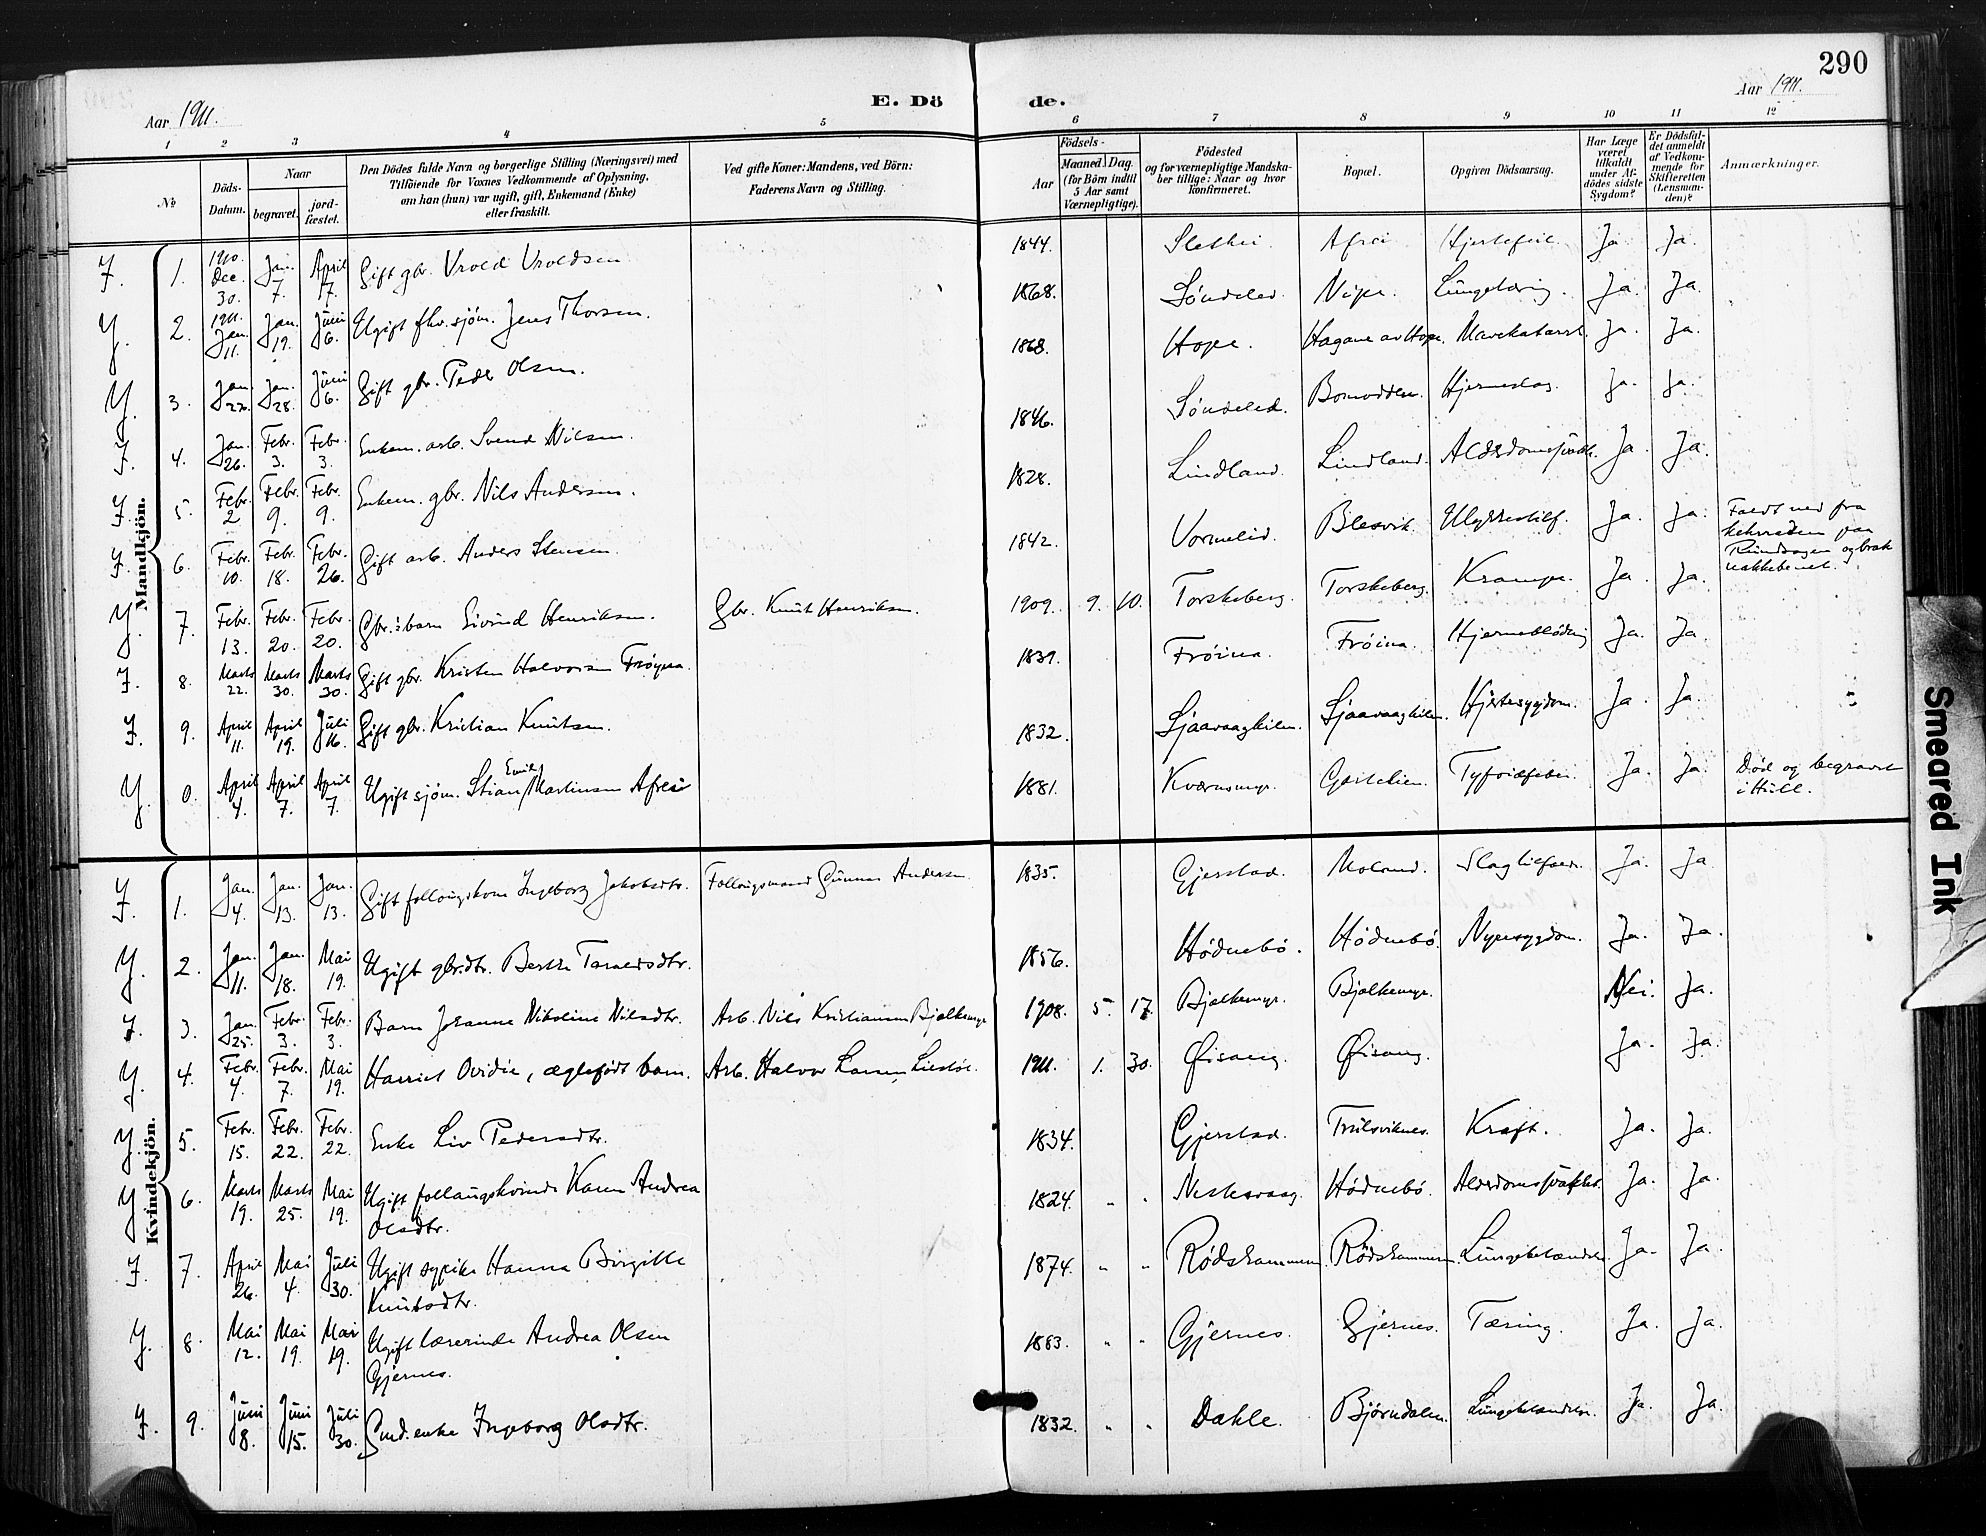 290
Aar 1911.
E. Döde.
Aar 1911.
1 2 3 4 5 6 7 8 9 10 11 12
№
Döds-Datum.
Naar
begravet.
jord-fæstet.
Den Dödes fulde Navn og borgerlige Stilling (Næringsvei) med
Tilföiende for Voxnes Vedkommende af Oplysning,
om han (hun) var ugift, gift, Enkemand (Enke)
eller fraskilt.
Ved gifte Koner: Mandens, ved Börn:
Faderens Navn og Stilling.
Födsels-
Aar
Maaned. Dag.
(for Börn indtil
5 Aar samt
Værnepligtige).
Födested
og for værnepligtige Mandska-
ber tillige: Naar og hvor
konfirmeret.
Bopæl.
Opgiven Dödsaarsag.
Har Læge
været
tilkaldt
under Af-
dödes sidste
Sygdom?
Er Dödsfal-
det anmeldt
af Vedkom-
mende for
Skifteretten
(Lensman-
den)?
Anmærkninger.
Mandkjön.
1. 1910. Dec. 30. Jan. 7. April 17. Gift gbr. Vrold Vroldsen 1844. Slethei Afrei Hjertefeil Ja Ja.
2. 1911. Jan. 11. Jan. 19. Juni 6. Ugift fhv. sjøm. Jens Thorsen. 1868. Søndeled Nipe. Lungetæring. Ja. Ja.
3. Jan. 22. Jan. 28. Juni 6. Gift gbr. Peder Olsen. 1868. Hope. Hagane av Hope. Mavekatarrh. Ja. Ja.
4. Jan. 26. Febr. 3. Febr. 3. Enkem. arb. Svend Nilsen. 1846. Søndeled. Bomodden. Hjerneslag Ja. Ja.
5. Febr. 2 Febr. 9. Febr. 9. Enkem. gbr. Nils Andersen. 1828. Lindland. Lindland. Alderdomssvækk. Ja Ja.
6. Febr. 10. Febr. 18. Febr. 26. Gift arb. Anders Stensen. 1842. Vormelid. Blesvik. Ulykkestilf. Ja. Ja. Faldt ned fra
paa
og brak
nakkebenet.
7. Febr. 13. Febr. 20. Febr. 20. Gbr.s barn Eivind Henriksen. Gbr. Knut Henriksen. 1909. 9. 10. Torskeberg. Torskeberg. Krampe. Ja Ja.
8. Marts 22. Marts 30. Marts 30. Gift gbr. Kristen Halvorsen Frøyna. 1839. Frøina. Frøina. Hjerneblødnig Ja. Ja.
9. April 11. April 19. Juli 16. Gift gbr. Kristian Knutsen. 1832. Sjaavaagkilen. Sjaavaagkilen. Hjertesygdom. Ja. Ja.
0. April 4. April 7. April 7. Ugift sjøm. Stian Emil Martinsen Afrei 1881. Kværnmyr. Tyfoidfeber. Ja. Ja. Død og begravet
i Hull.
Kvindekjön.
1. Jan. 4. Jan. 13. Jan. 13. Gift follaugskone Ingeborg Jakobsdtr. Follaugsmand Gunnar Andersen 1835. Gjerstad. Moland. Slagtilfælde. Ja. Ja
2. Jan. 11. Jan. 18. Mai 19. Ugift gbr.dtr. Berthe Taraldsdtr. 1856. Hødnebø. Hødnebø. Nyresygdom. Ja. Ja.
3. Jan. 25. Febr. 3. Febr. 3. Barn Johanne Nikoline Nilsdtr. Arb. Nils Kristiansen Bjalkemyr 1908. 5. 17. Bjalkemyr. Bjalkemyr. Nei. Ja.
4. Febr. 4. Febr. 7. Mai 19. Harriet Ovidie, ægtefødt barn. Arb. Halvor Larsen 1911. 1. 30. Øisang. Øisang. Ja. Ja.
5. Febr. 15. Febr. 22. Febr. 22. Enke Liv Pedersdtr. 1834. Gjerstad. Trulsviknes. Kræft. Ja. Ja.
6. Marts 19. Marts 25. Mai 19. Ugift follaugskvinde Karen Andrea
Olsdtr. 1824. " " Nestesvaag. Hødnebø. Alderdomssvækket. Ja. Ja.
7. April 26. Mai 4. Juli 30. Ugift sypike Hanna Birgitte
Knutsdtr. 1874. " " Rødskammen. Rødskammen. Lungebetændelse. Ja. Ja.
8. Mai 12. Mai 19. Mai 19. Ugift lærerinde Andrea Olsen
Gjernes. 1883. " " Gjernes. Gjernes. Tæring. Ja. Ja.
9. Juni 8. Juni 15. Juli 30. Gmd. enke Ingeborg Olsdtr. 1832. " " Dahle. Bjørndalen. Lungebetændelse. Ja. Ja.
Smeared Ink